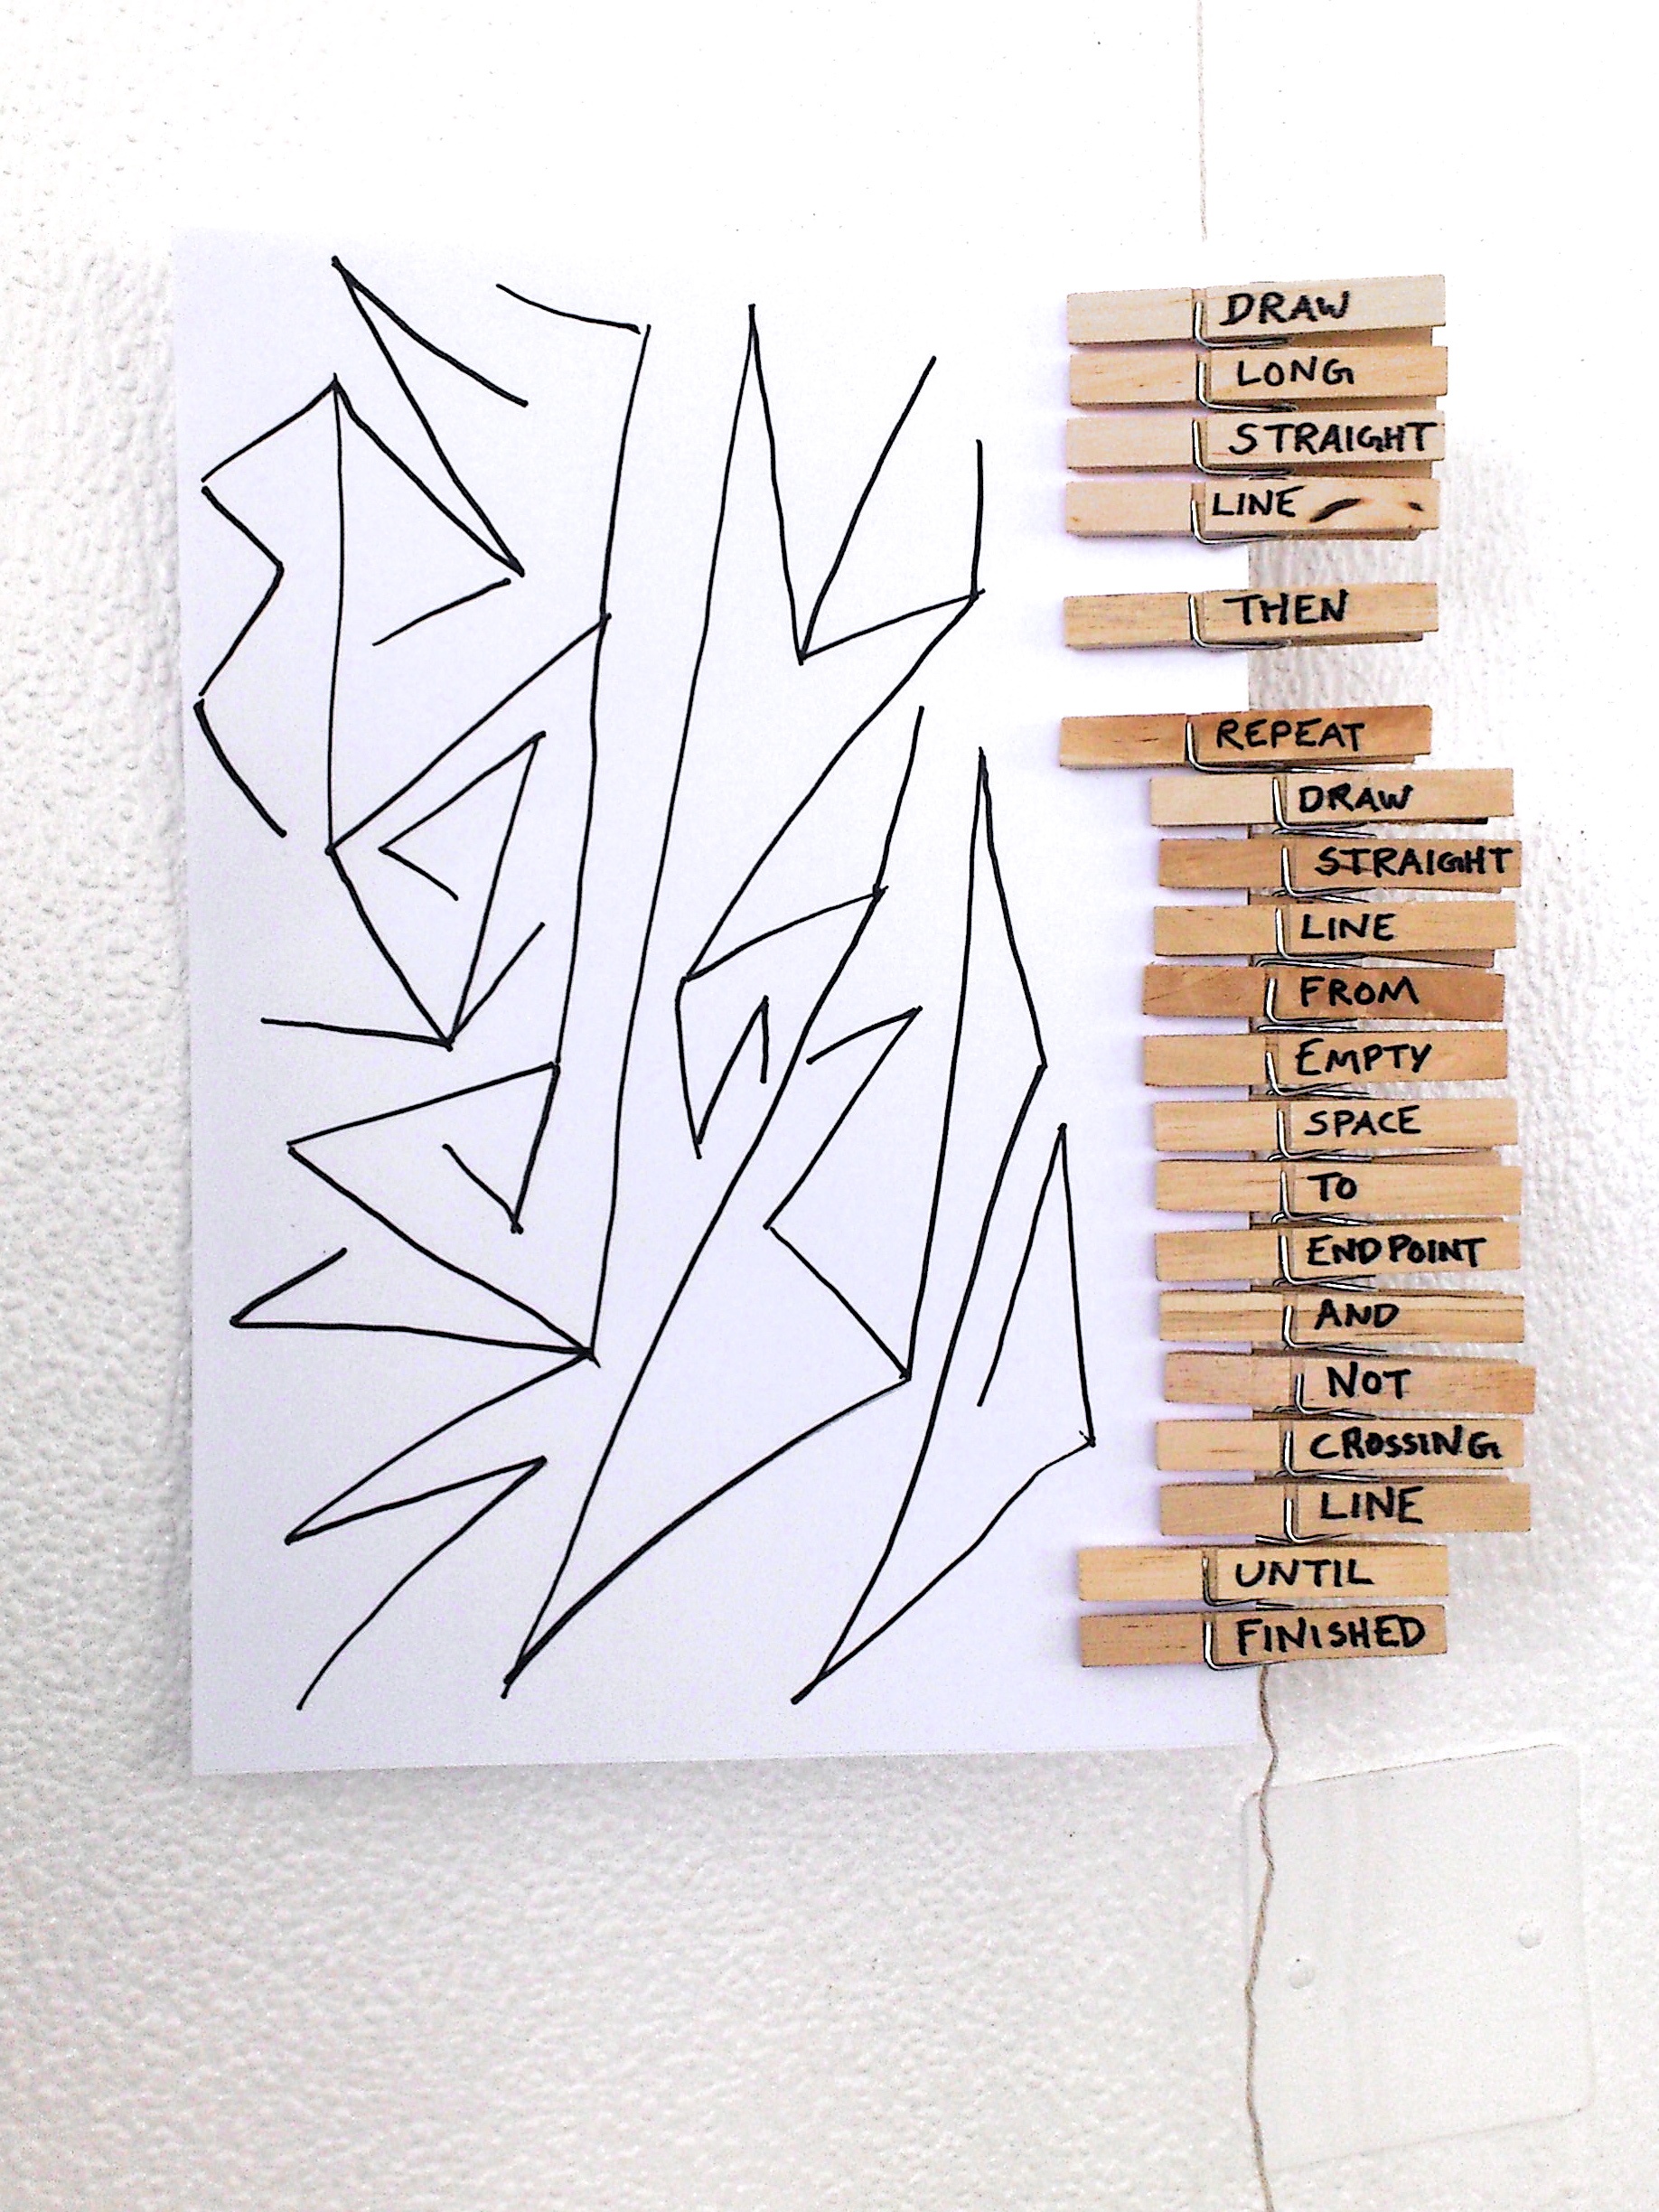 DRAW
LONG
STRAIGHT
LINE
THEN
REPEAT
DRAW
STRAIGHT
LINE
FROM
EMPTY
SPACE
TO
ENDPOINT
AND
NOT
CROSSING
LINE
UNTIL
FINISHED